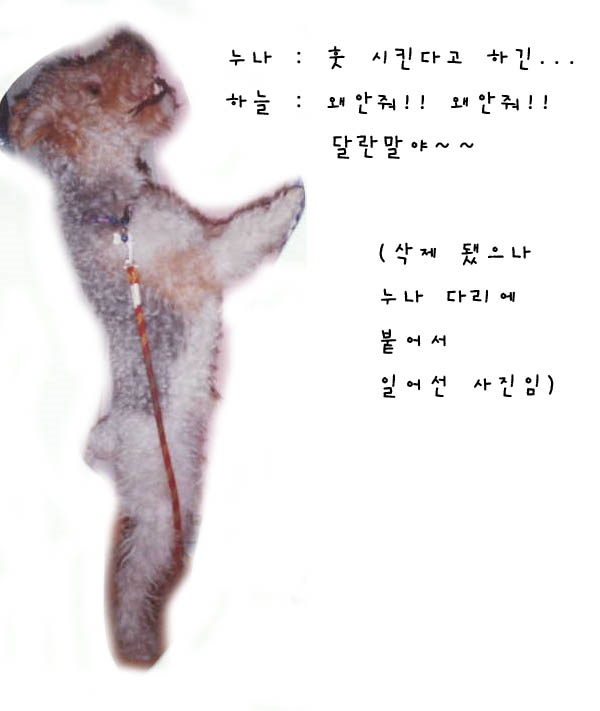 누나 : 훗 시킨다고 하긴...
하늘 : 왜안줘!! 왜안줘!!
달란말야~~
(삭제 됐으나
누나 다리에
붙어서
일어선 사진임)